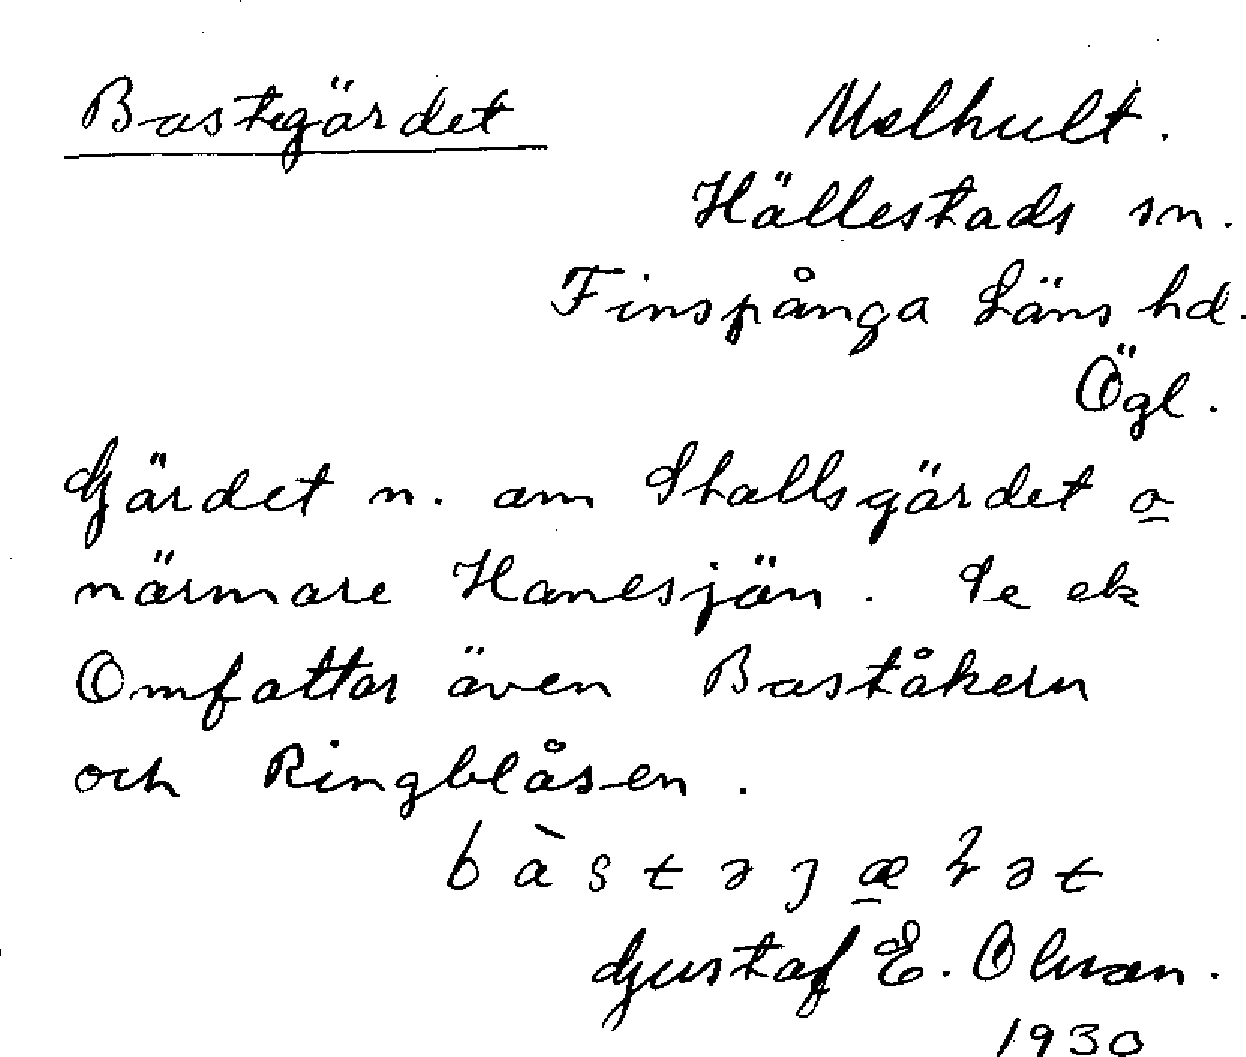 Bastegärdet Melhult.
Hällestads sn.
Finspånga Läns hd.
Ögl.
Gärdet n. om Skallsgärdet o
närmare Hanesjön. Se ek
Omfattar även Baståkern
och Ringblåsen.
Gustaf E. Olsson.
1930